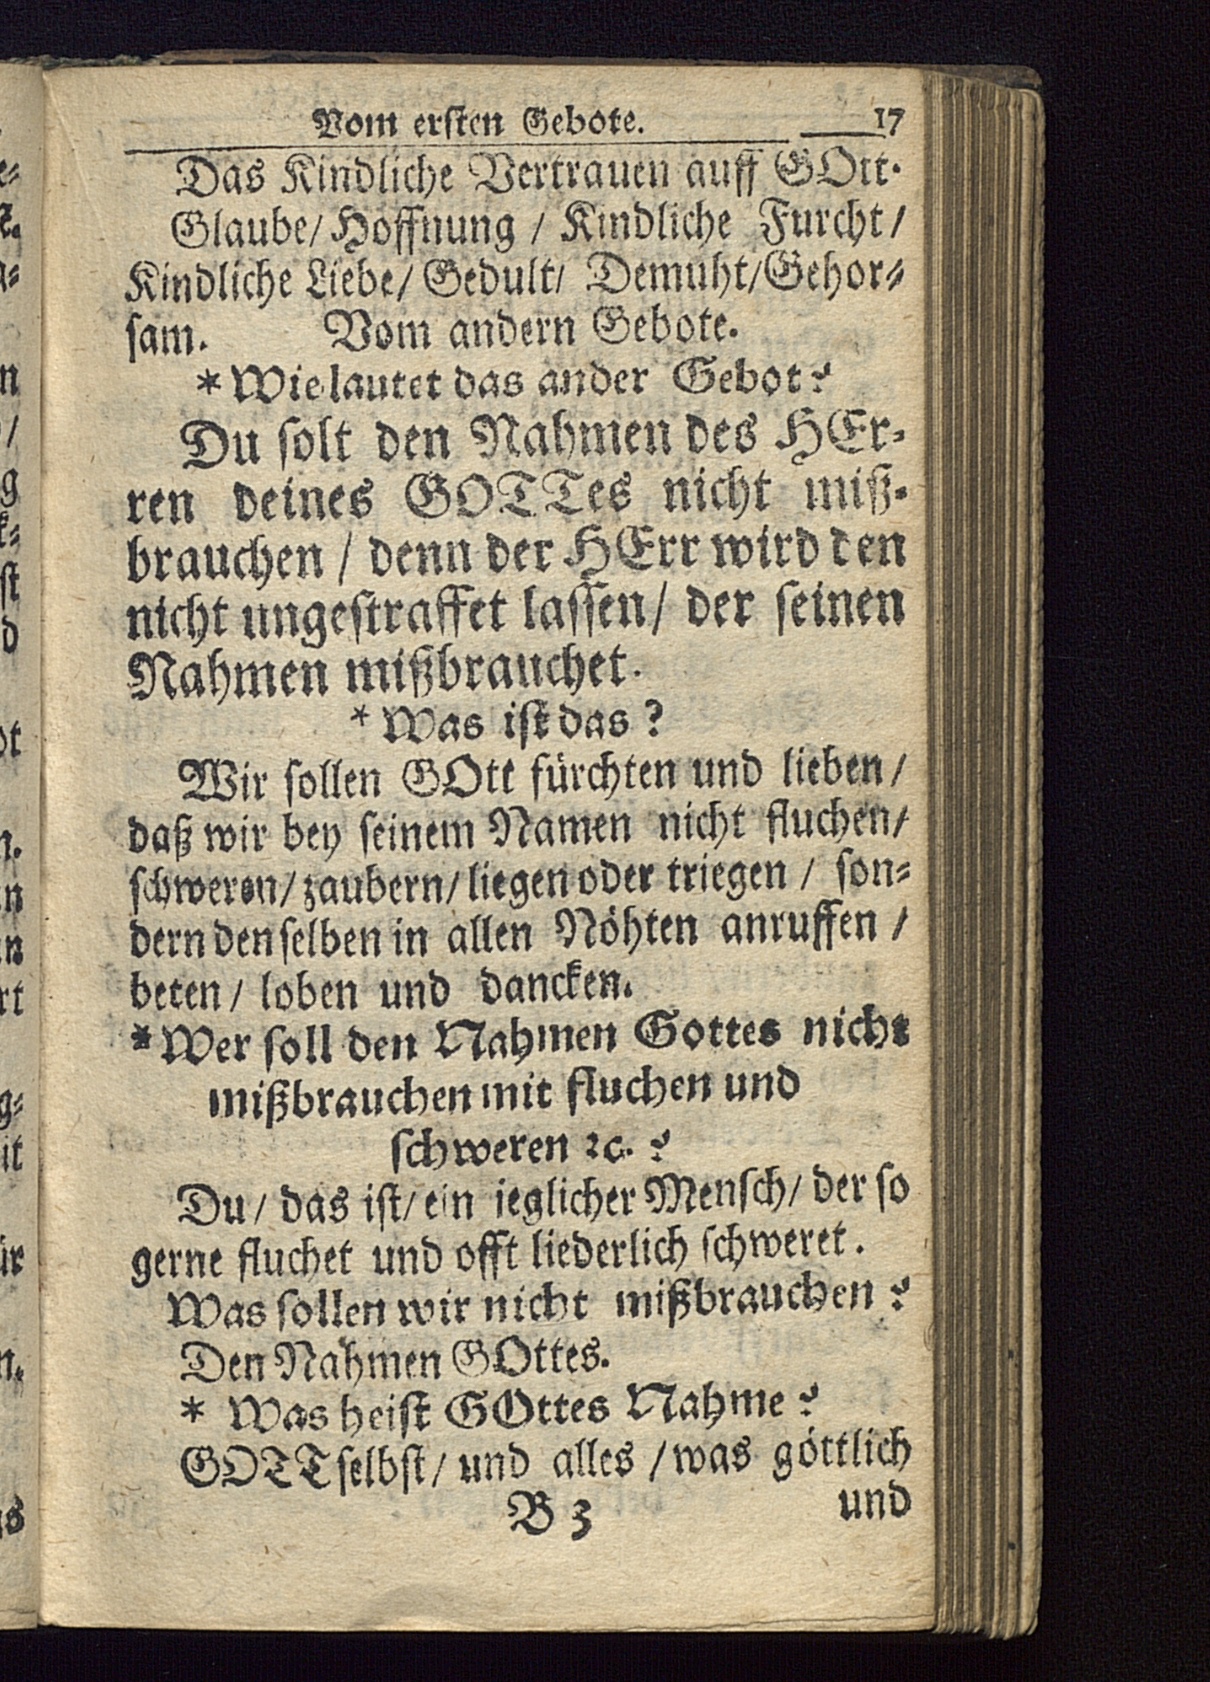 Vom ersten Gebote. 17
Das Kindliche Vertrauen auff GOtt.
Glaube/ Hoffnung / Kindliche Furcht/
Kindliche Liebe/ Gedult/ Demuht/Gehor=
sam. Vom andern Gebote.
* Wie lautet das ander Gebot?
Du solt den Nahmen des HEr=
ren deines GOTTes nicht miß=
brauchen / denn der HErr wird den
nicht ungestraffet lassen/ der seinen
Nahmen mißbrauchet.
* Was ist das?
Wir sollen GOtt fürchten und lieben/
daß wir bey seinem Namen nicht fluchen/
schweren/ zaubern/ liegen oder triegen / son=
dern denselben in allen Nöhten anruffen /
beten / loben und dancken.
* Wer soll den Nahmen Gottes nicht
mißbrauchen mit fluchen und
schweren ꝛc. ?
Du/ das ist/ ein jeglicher Mensch/ der so
gerne fluchet und offt liederlich schweret.
Was sollen wir nicht mißbrauchen?
Den Nahmen GOttes.
* Was heist GOttes Nahme?
GOTT selbst/ und alles /was göttlich
B 3 und